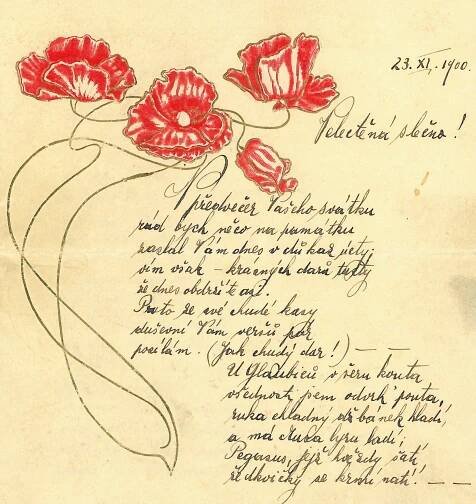 23. XI. 1900.
Velectěná slečno!
V předvečer Vašeho svátku
rád bych něco na památku
zaslal Vám dnes v důkaz úcty,
vím však – krásných darů tucty
že dnes obdržíte asi.
Proto ze své chudé kasy
duševní Vám veršů pár
posílám. (Jak chudý dar!) — —
U Glaubiců v šeru kouta
všednosti jsem odvrh' pouta,
ruka chladný džbánek hladí,
a má Musa lyru ladí;
Pegasus, jejž hvězdy šatí
ředkvičky se krmí natí! — —